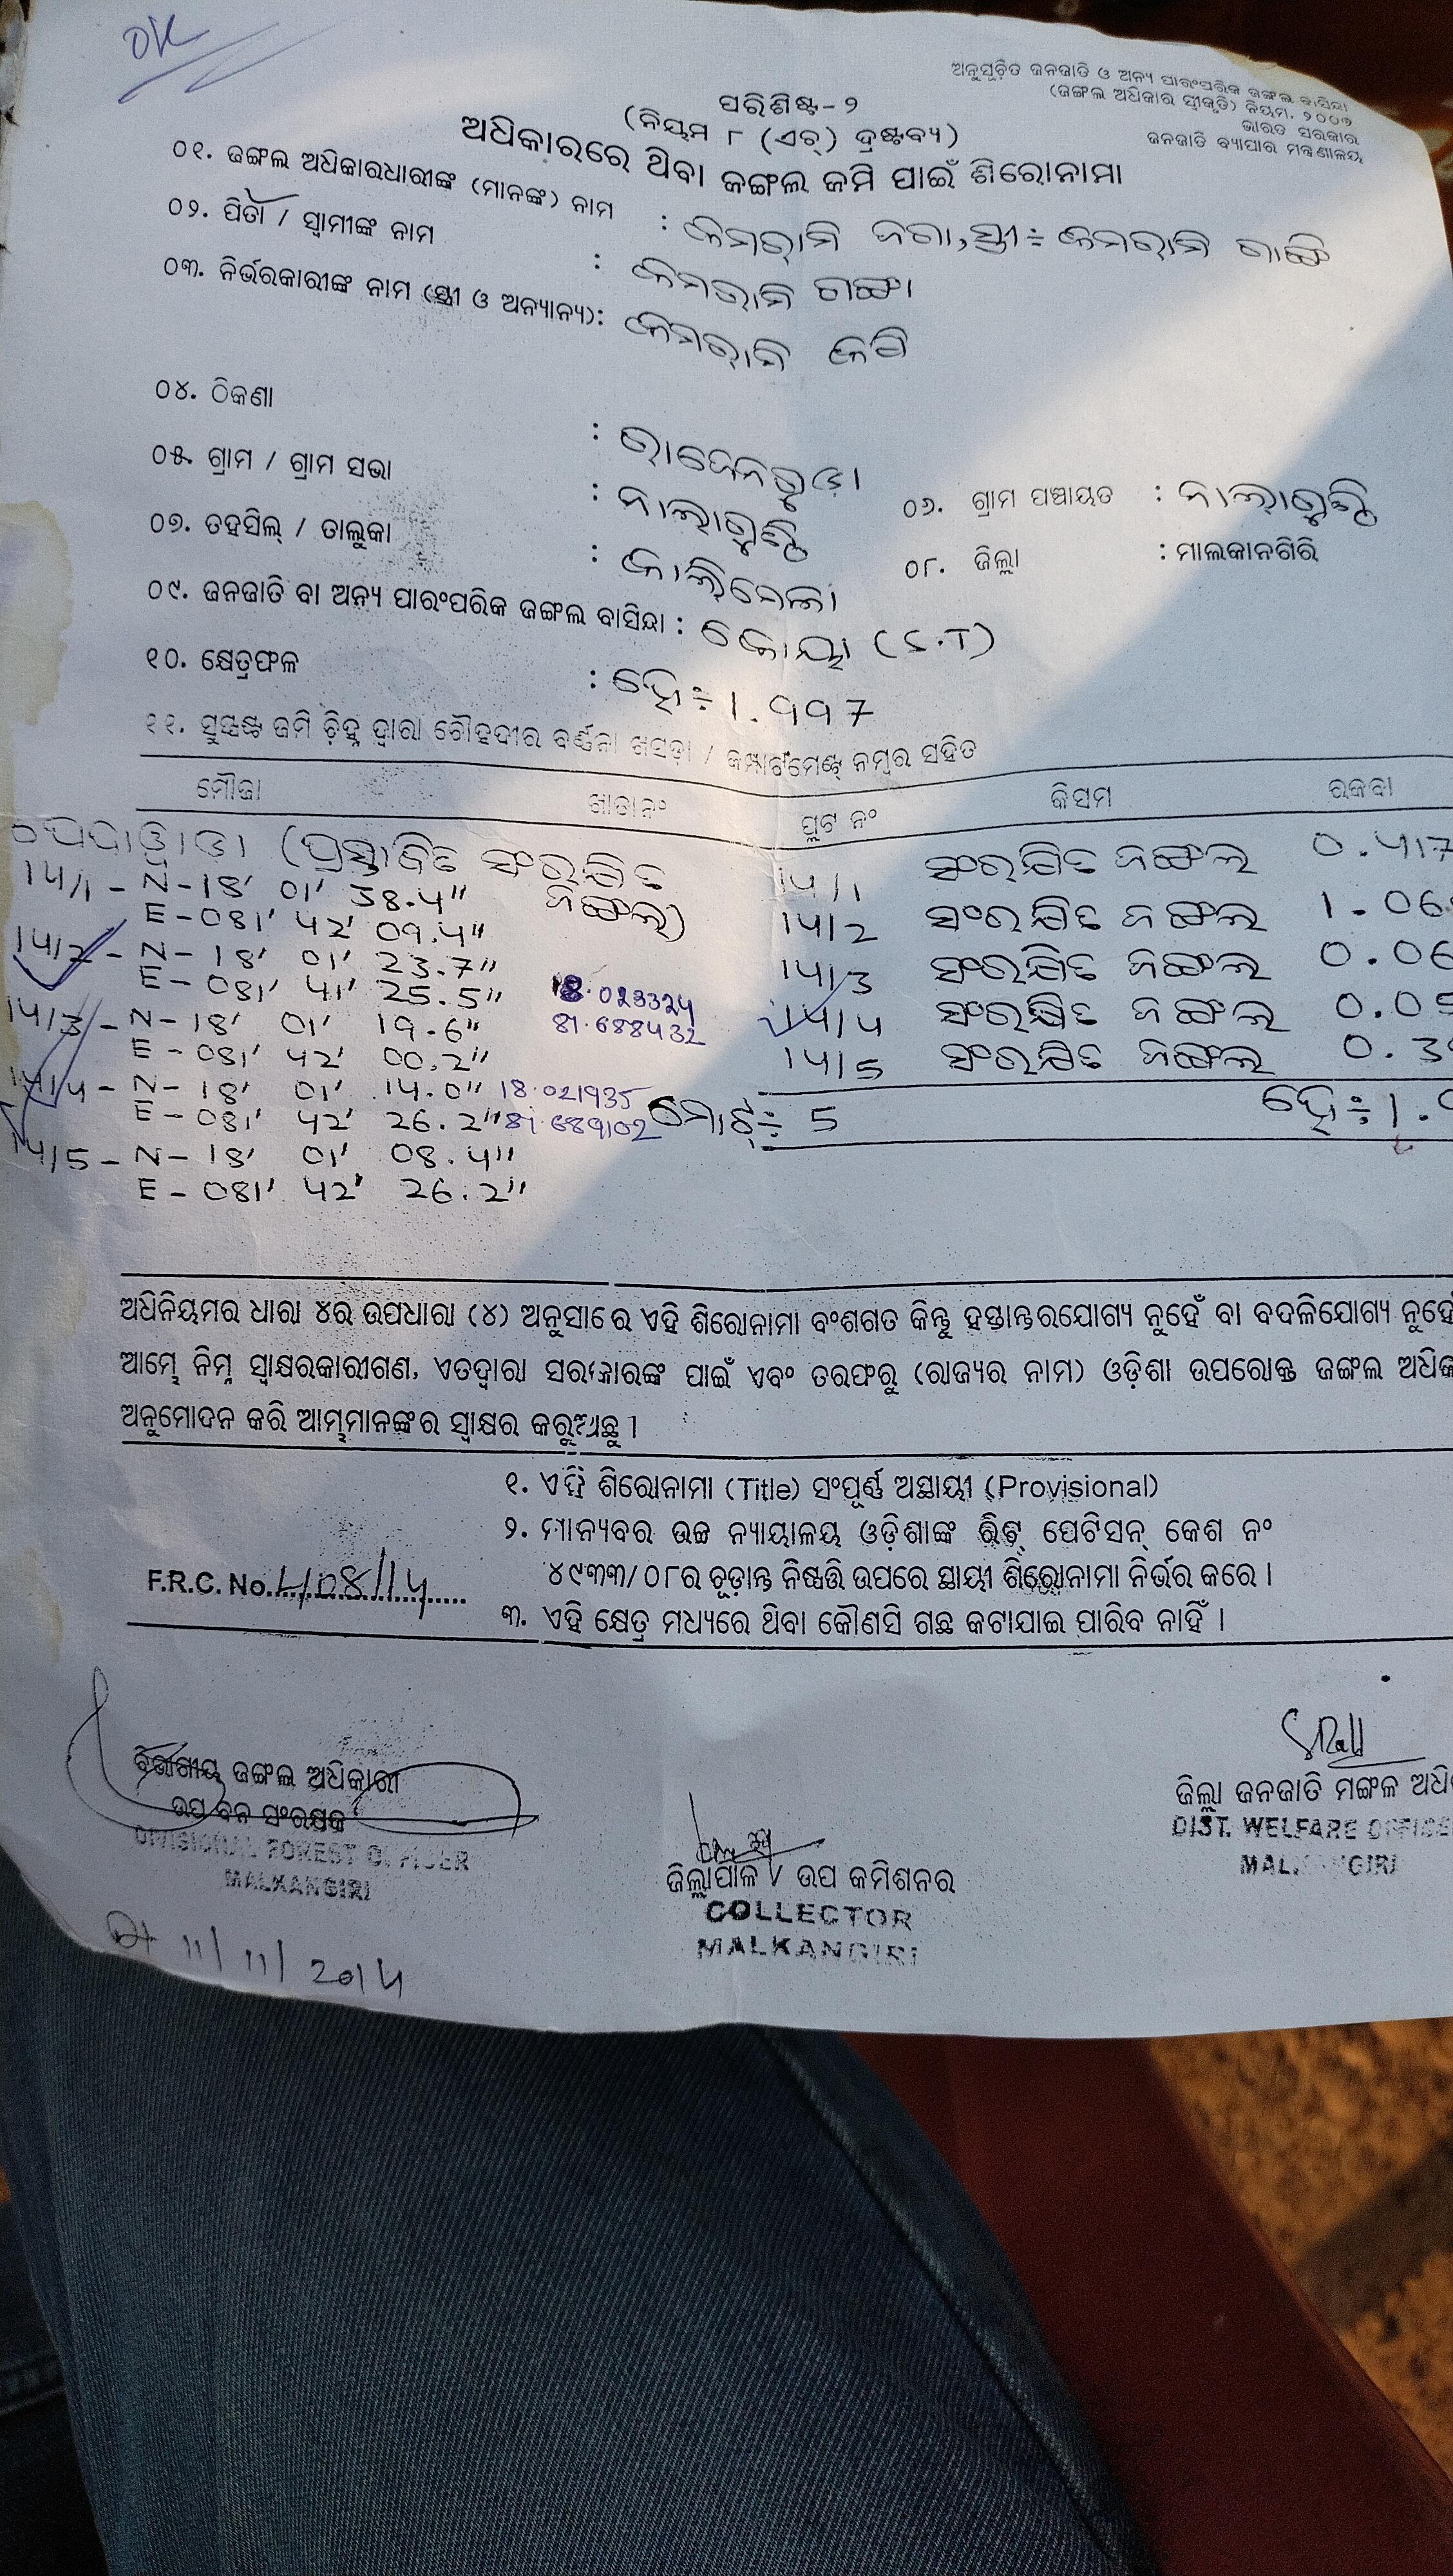 OK
ଅନୁସୂଚିତ ଜନଜାତି ଓ ଅନ୍ୟ ପାରଂପରିକ ଜଙ୍ଗଲ ବାସିନ୍ଦା
(ଜଙ୍ଗଲ ଅଧିକାର ସ୍ୱୀକୃତି) ନିୟମ, ୨୦୦୭
ଭାରତ ସରକାର
ଜନଜାତି ବ୍ୟାପାର ମନ୍ତ୍ରଣାଳୟ
ପରିଶିଷ୍ଟ- ୨
(ନିୟମ ୮ (ଏଚ୍) ଦ୍ରଷ୍ଟବ୍ୟ)
ଅଧିକାରରେ ଥିବା ଜଙ୍ଗଲ ଜମି ପାଇଁ ଶିରୋନାମା
୦୧. ଜଙ୍ଗଲ ଅଧିକାରଧାରୀଙ୍କ (ମାନଙ୍କ) ନାମ : କମରାମି ଜଗା, ସ୍ତ୍ରୀ÷ କମରାମି
୦୨. ପିତା / ସ୍ୱାମୀଙ୍କ ନାମ : କମରାମି ଗଙ୍ଗା
୦୩. ନିର୍ଭରକାରୀଙ୍କ ନାମ (ସ୍ତ୍ରୀ ଓ ଅନ୍ୟାନ୍ୟ): କମରାମି
୦୪. ଠିକଣା :
୦୫. ଗ୍ରାମ / ଗ୍ରାମ ସଭା : ନାଲାଗୁଣ୍ଠି ୦୬. ଗ୍ରାମ ପଞ୍ଚାୟତ : ନାଲାଗୁଣ୍ଠି
୦୭. ତହସିଲ୍ / ତାଲୁକା : କାଲିମେଳା ୦୮. ଜିଲ୍ଲା : ମାଲକାନଗିରି
୦୯. ଜନଜାତି ବା ଅନ୍ୟ ପାରଂପରିକ ଜଙ୍ଗଲ ବାସିନ୍ଦା : କୋୟା (S.T)
୧୦. କ୍ଷେତ୍ରଫଳ : ହେ÷ 1.997
୧୧. ସୁସ୍ପଷ୍ଟ ଜମି ଚିହ୍ନ ଦ୍ୱାରା ଚୌହଦୀର ବର୍ଣ୍ଣନା ଖସଡ଼ା / କମ୍ପାର୍ଟମେଣ୍ଟ୍ ନମ୍ବର ସହିତ
ମୌଜା ଖାତା ନଂ ପ୍ଲଟ ନଂ କିସମ ରକବା
(ପ୍ରସ୍ତାବିତ ସଂରକ୍ଷିତ ଜଙ୍ଗଲ)
14/1 - N-18' 01' 38.4"
E-081' 42' 09.4"
14/2 - N- 18' 01' 23.7"
E - 081' 41' 25.5" 18.023324
14/3 - N- 18' 01' 19.6" 81.688432
E - 081' 42' 00.2"
14/4 - N- 18' 01' 14.0" 18.021935
E - 081' 42' 26.2" 81.689102
14/5 - N- 18' 01' 08.4"
E - 081' 42' 26.2"
14/1 ସଂରକ୍ଷିତ ଜଙ୍ଗଲ 0.417
14/2 ସଂରକ୍ଷିତ ଜଙ୍ଗଲ 1.06
14/3 ସଂରକ୍ଷିତ ଜଙ୍ଗଲ 0.06
14/4 ସଂରକ୍ଷିତ ଜଙ୍ଗଲ 0.05
14/5 ସଂରକ୍ଷିତ ଜଙ୍ଗଲ 0.3
ମୋଟ୍÷ 5 ହେ÷ 1.9
ଅଧିନିୟମର ଧାରା ୪ର ଉପଧାରା (୪) ଅନୁସାରେ ଏହି ଶିରୋନାମା ବଂଶଗତ କିନ୍ତୁ ହସ୍ତାନ୍ତରଯୋଗ୍ୟ ନୁହେଁ ବା ବଦଳିଯୋଗ୍ୟ ନୁହେଁ
ଆମ୍ଭେ ନିମ୍ନ ସ୍ୱାକ୍ଷରକାରୀଗଣ, ଏତଦ୍ୱାରା ସରକାରଙ୍କ ପାଇଁ ଏବଂ ତରଫରୁ (ରାଜ୍ୟର ନାମ) ଓଡ଼ିଶା ଉପରୋକ୍ତ ଜଙ୍ଗଲ ଅଧିକ
ଅନୁମୋଦନ କରି ଆମ୍ଭମାନଙ୍କର ସ୍ୱାକ୍ଷର କରୁଅଛୁ ।
୧. ଏହି ଶିରୋନାମା (Title) ସଂପୂର୍ଣ୍ଣ ଅସ୍ଥାୟୀ (Provisional)
୨. ମାନ୍ୟବର ଉଚ୍ଚ ନ୍ୟାୟାଳୟ ଓଡ଼ିଶାଙ୍କ ରିଟ୍ ପେଟିସନ୍ କେଶ ନଂ
୪୯୩୩/୦୮ର ଚୂଡ଼ାନ୍ତ ନିଷ୍ପତ୍ତି ଉପରେ ସ୍ଥାୟୀ ଶିରୋନାମା ନିର୍ଭର କରେ ।
F.R.C. No. 408/14
୩. ଏହି କ୍ଷେତ୍ର ମଧ୍ୟରେ ଥିବା କୌଣସି ଗଛ କଟାଯାଇ ପାରିବ ନାହିଁ ।
ବିଭାଗୀୟ ଜଙ୍ଗଲ ଅଧିକାରୀ
ଉପ ବନ ସଂରକ୍ଷକ
DIVISIONAL FOREST OFFICER
MALKANGIRI
Dt 11/11/2014
ଜିଲ୍ଲାପାଳ / ଉପ କମିଶନର
COLLECTOR
MALKANGIRI
ଜିଲ୍ଲା ଜନଜାତି ମଙ୍ଗଳ ଅଧି
DIST. WELFARE OFFICE
MALKANGIRI